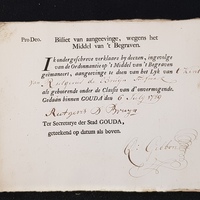 Pro Deo.
Billiet van aangeevinge, wegens het
Middel van 't Begraven.
IK ondergeschreve verklaare by deezen, ingevolge
van de Ordonnantie op 't Middel van 't Begraven
geëmaneert, aangeevinge te doen van het Lyk van 't kint
van
als gehoorende onder de Classe van d' onvermogende.
Gedaan binnen GOUDA den 6 July 1779
Rutgert D Bruyn
Ter Secretarye der Stad GOUDA,
geteekent op datum als boven.